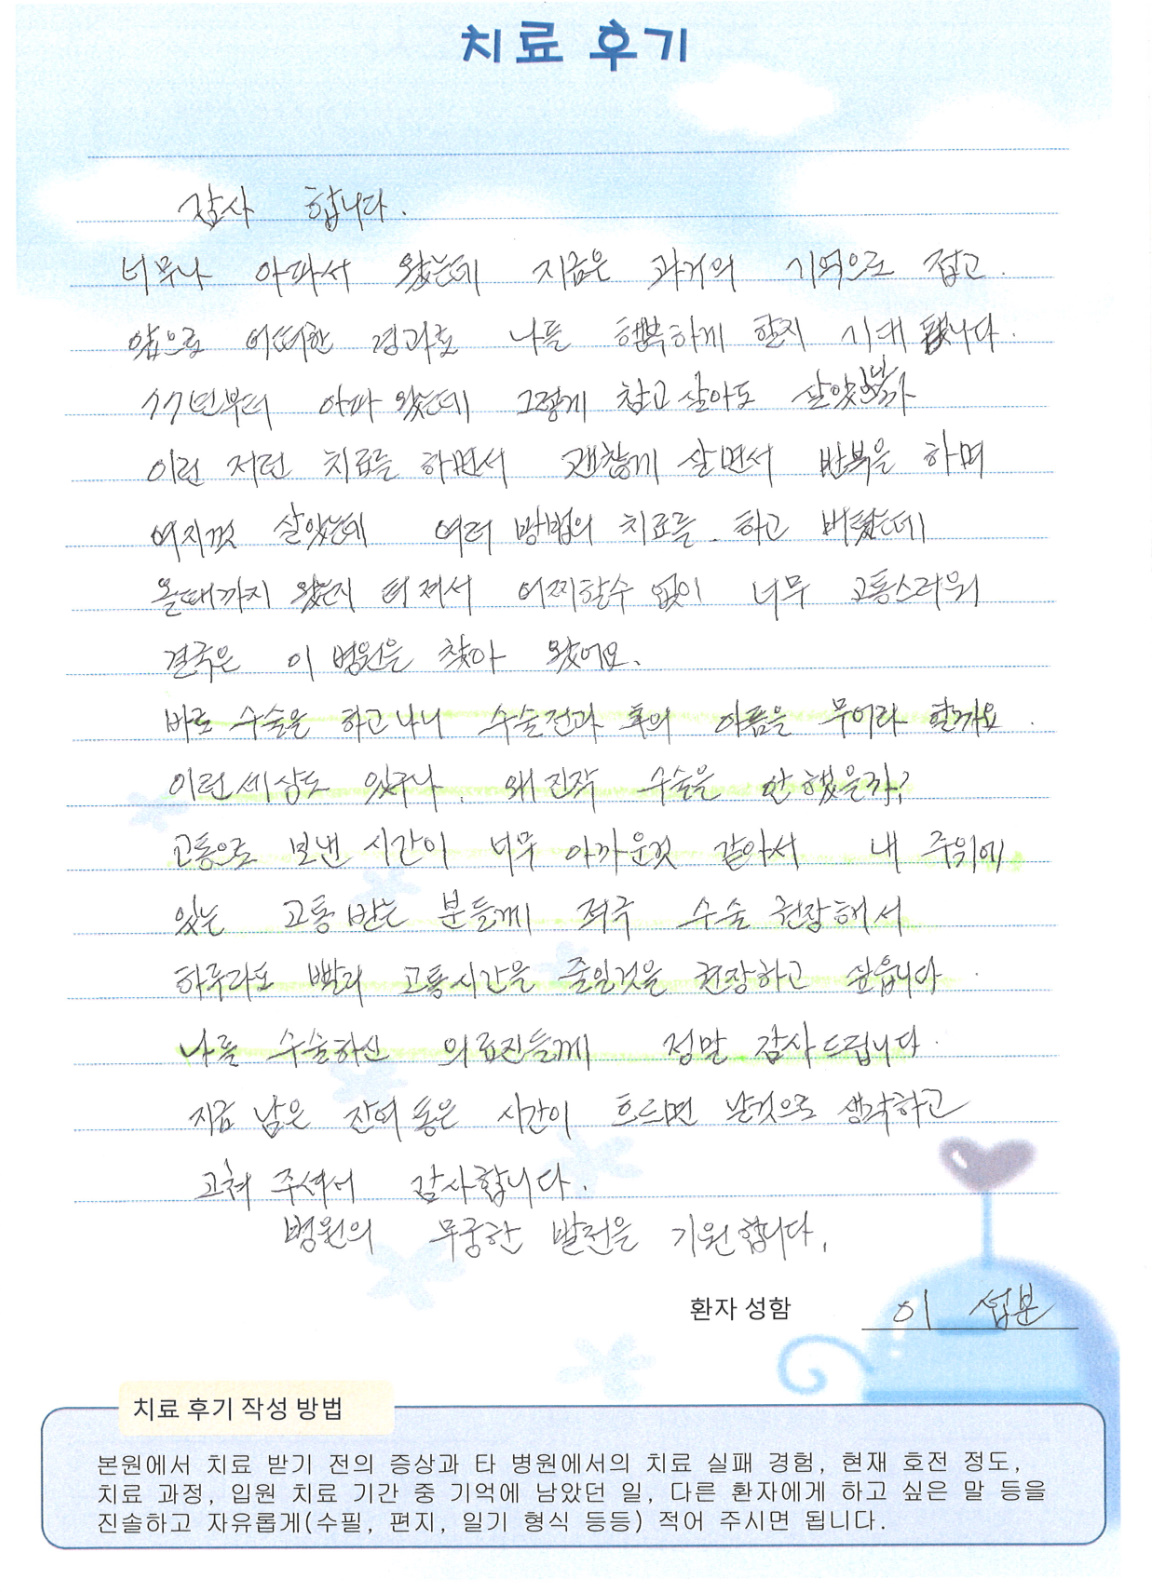 치료 후기
감사 합니다.
너무나 아파서 왔는데 지금은 과거의 기억으로 접고.
앞으로 어떠한 결과로 나를 행복하게 할지 기대 됩니다.
17년부터 아파 왔는데 그렇게 참고 살아도 살았는가
이런 저런 치료를 하면서 괜찮게 살면서 반복을 하며
여지껏 살았는데 여러 방법의 치료를 하고 버텼는데
올때까지 왔는지 터져서 어찌할수 없이 너무 고통스러워
결국은 이 병원을 찾아 왔어요.
바로 수술을 하고나니 수술전과 후의 아픔을 무어라 할까요.
이런 세상도 있구나. 왜 진작 수술을 안 했을까?
고통으로 보낸 시간이 너무 아까운것 같아서 내 주위에
있는 고통 받는 분들께 적극 수술 권장해서
하루라도 빨리 고통시간을 줄일것을 권장하고 싶읍니다.
나를 수술하신 의료진들께 정말 감사드립니다.
지금 남은 잔여 통은 시간이 흐르면 날것으로 생각하고
고쳐 주셔서 감사합니다.
병원의 무궁한 발전을 기원합니다.
환자 성함 이 섭분
치료 후기 작성 방법
본원에서 치료 받기 전의 증상과 타 병원에서의 치료 실패 경험, 현재 호전 정도,
치료 과정, 입원 치료 기간 중 기억에 남았던 일, 다른 환자에게 하고 싶은 말 등을
진솔하고 자유롭게(수필, 편지, 일기 형식 등등) 적어 주시면 됩니다.